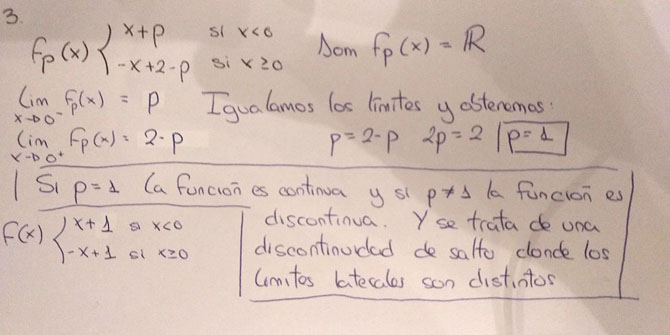 3.
fp(x) { x+p si x<0 Dom fp(x) = ℝ
-x+2-p si x≥0
lim x→0⁻ fp(x) = p Igualamos los límites y obtenemos:
lim x→0⁺ fp(x) = 2-p p=2-p 2p=2 p=1
Si p=1 la función es continua y si p≠1 la función es
discontinua. Y se trata de una
discontinuidad de salto donde los
límites laterales son distintos
f(x) { x+1 si x<0
-x+1 si x≥0